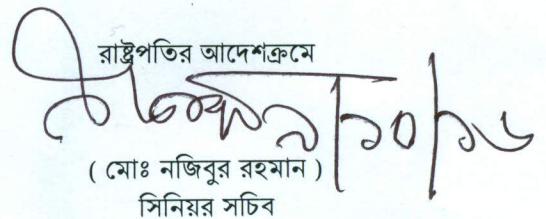 রাষ্ট্রপতির আদেশক্রমে
( মোঃ নজিবুর রহমান )
সিনিয়র সচিব